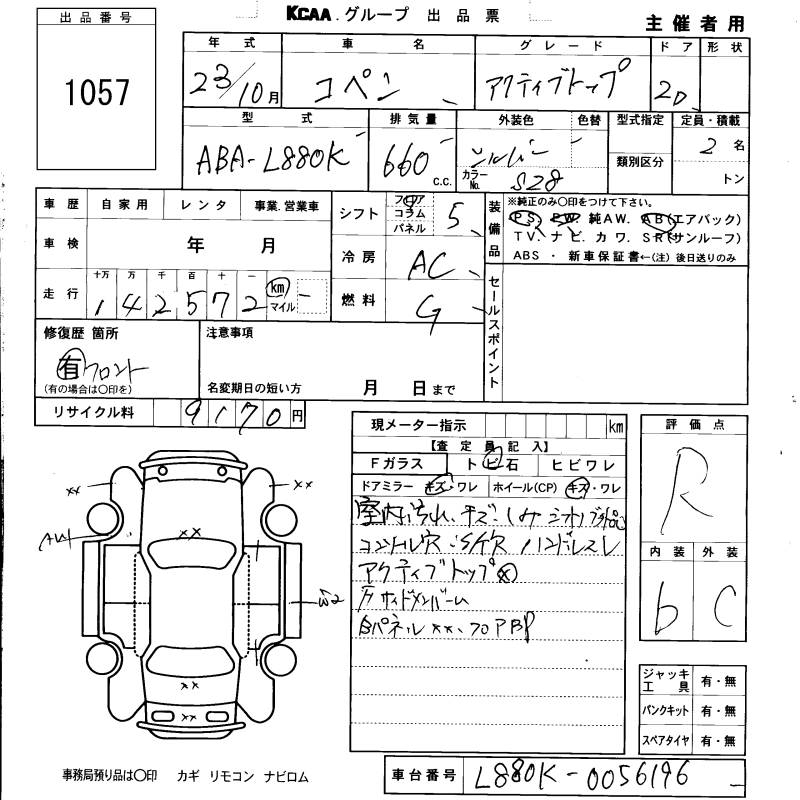 KCAA グループ 出品票
主催者用
出品番号
1057
年式 車名 グレード ドア 形状
23/10月 コペン アクティブトップ 2D
型式 排気量 外装色 色替 型式指定 定員・積載
ABA-L880K 660c.c. シルバー 2名
カラーNo. S28 類別区分 トン
車歴 自家用 レンタ 事業.営業車
シフト フロア コラム パネル 5
装備品 ※純正のみ○印をつけて下さい。
PS. PW. 純AW. AB(エアバック)
TV. ナビ. カワ. SR(サンルーフ)
ABS ・ 新車保証書←(注) 後日送りのみ
車検 年 月
冷房 AC
走行 十万 万 千 百 十 一
142572 km マイル
燃料 G
セールスポイント
修復歴 箇所
有 フロント
(有の場合は○印を)
注意事項
名変期日の短い方 月 日まで
リサイクル料 9170円
現メーター指示 km
【査定員記入】
Fガラス トビ石 ヒビワレ
ドアミラー キズ・ワレ ホイール(CP) キズ・ワレ
室内汚れ、キズ、シミ
コントロール穴、ハンドルスレ
アクティブトップ
サイドメンバーム
パネル××、フロアBP
評価点
R
内装 外装
b C
ジャッキ工具 有・無
パンクキット 有・無
スペアタイヤ 有・無
××
××
××
AW1
W2
××
××
事務局預り品は○印 カギ リモコン ナビロム
車台番号 L880K-0056196